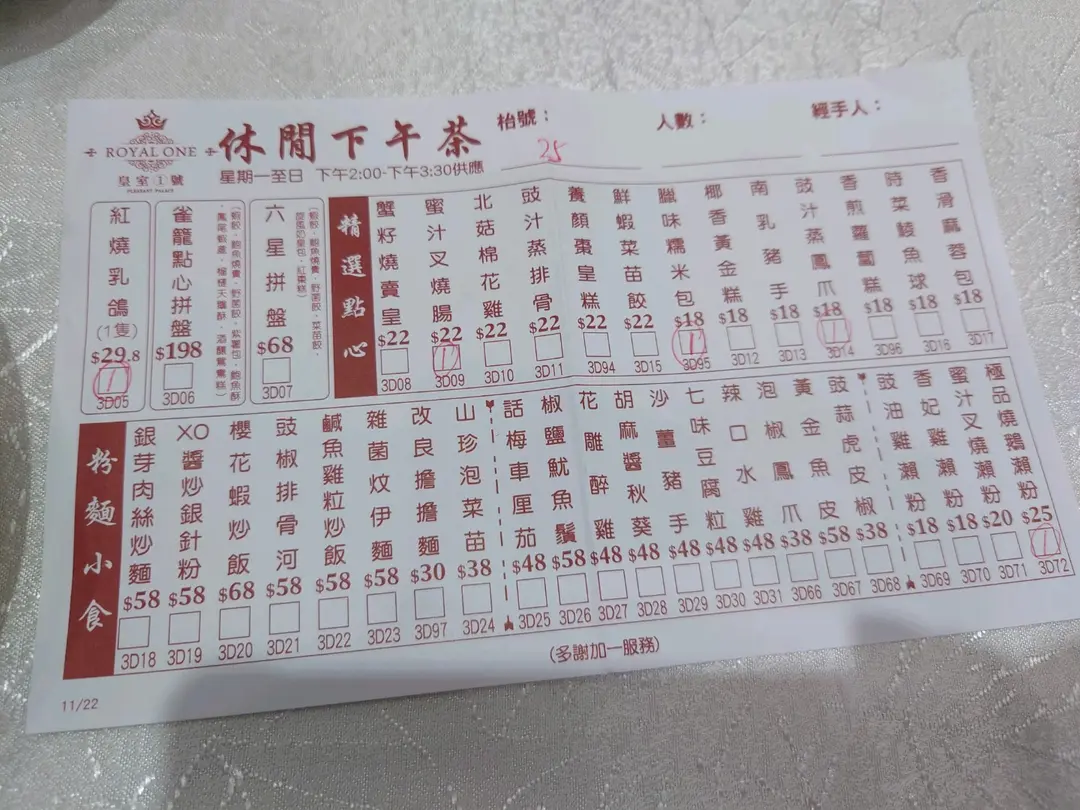 ROYAL ONE
皇室1號
PLEASANT PALACE
休閒下午茶
星期一至日 下午2:00-下午3:30供應
枱號：
25
人數：
經手人：
紅燒乳鴿(1隻) $29.8 1 3D05
雀籠點心拼盤 $198 3D06
六星拼盤 $68 3D07
精選點心
蟹籽燒賣皇 $22 3D08
蜜汁叉燒腸 $22 1 3D09
北菇棉花雞 $22 3D10
豉汁蒸排骨 $22 3D11
養顏棗皇糕 $22 3D94
鮮蝦菜苗餃 $22 3D15
臘味糯米包 $18 1 3D95
椰香黃金糕 $18 3D12
南乳豬手 $18 3D13
豉汁蒸鳳爪 $18 1 3D14
香煎蘿蔔糕 $18 3D96
時菜鯪魚球 $18 3D16
香滑麻蓉包 $18 3D17
粉麵小食
銀芽肉絲炒麵 $58 3D18
XO醬炒銀針粉 $58 3D19
櫻花蝦炒飯 $68 3D20
豉椒排骨河 $58 3D21
鹹魚雞粒炒飯 $58 3D22
雜菌炆伊麵 $58 3D23
改良擔擔麵 $30 3D97
山珍泡菜苗 $38 3D24
話梅車厘茄 $48 3D25
椒鹽魷魚鬚 $58 3D26
花雕醉雞 $48 3D27
胡麻醬秋葵 $48 3D28
沙薑豬手 $48 3D29
七味豆腐粒 $48 3D30
辣口水雞 $48 3D31
泡椒鳳爪 $38 3D66
黃金魚皮 $58 3D67
豉蒜虎皮椒 $38 3D68
豉油雞瀨粉 $18 3D69
香妃雞瀨粉 $18 3D70
蜜汁叉燒瀨粉 $20 3D71
極品燒鵝瀨粉 $25 1 3D72
(多謝加一服務)
11/22